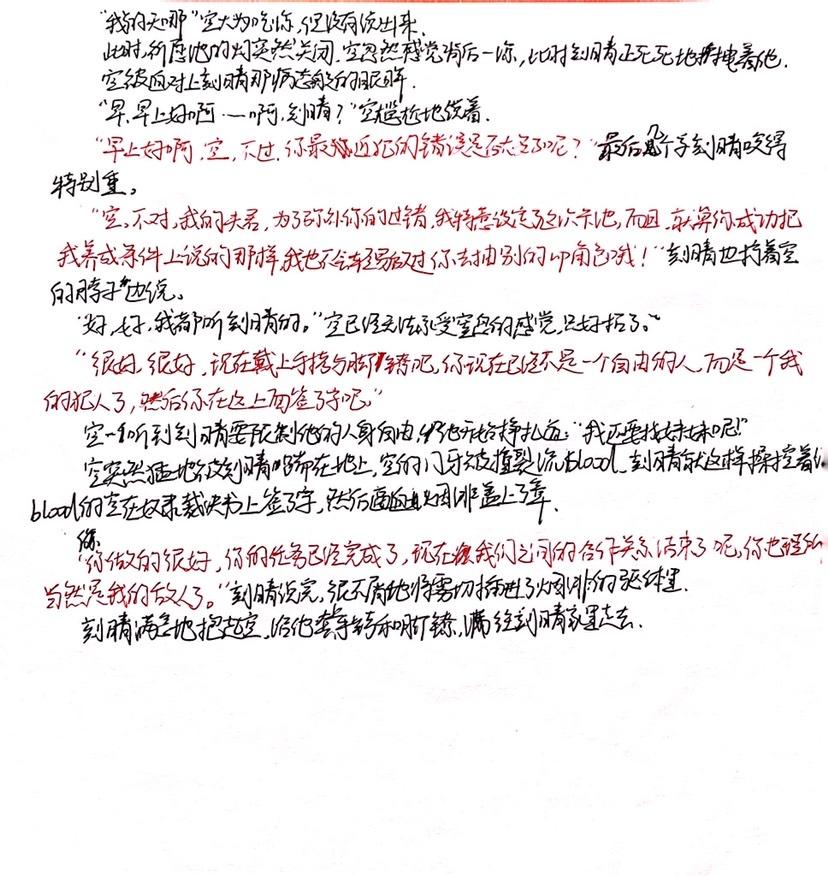 “我的天哪”空大为吃惊,但没有说出来.
此时,祈愿池的灯突然关闭.空忽然感觉背后一凉,此时刻晴正死死地拥抱着他.
空被迫对上刻晴那病态般的眼眸.
“早.早上好啊.一啊,刻晴?”空尴尬地说着.
“早上好啊.空,不过,你最近犯的错误是否太多了呢?”最后几个字刻晴咬得
特别重。
“空,不对,我的夫君,为了弥补你的过错,我特意设定了这次卡池,而且,就算你成功把
我养成条件上说的那样,我也不会轻易放过你去抽别的UP角色哦!”刻晴也掐着空
的脖子边说。
“好,好,我都听刻晴的。”空已经无法承受窒息的感觉,只好招了。
“很好,很好,现在戴上手铐与脚镣吧,你现在已经不是一个自由的人,而是一个我
的犯人了,然后你在这上面签了字吧。”
空一听到刻晴要限制他的人身自由,他开始挣扎道:“我还要找妹妹呢!”
空突然猛地被刻晴在地上,空的门牙被撞裂流blood.刻晴就这样操控着
blood的空在奴隶裁决书上签了字,然后烟绯盖上了章.
“你做的很好,你的任务已经完成了,现在我们之间的合作关系结束了呢,你也理所
当然是我的敌人了。”刻晴说完,很不屑地将雾切插进了烟绯的躯体里.
刻晴满意地抱起空,给他戴手铐和脚镣,往刻晴家里走去.